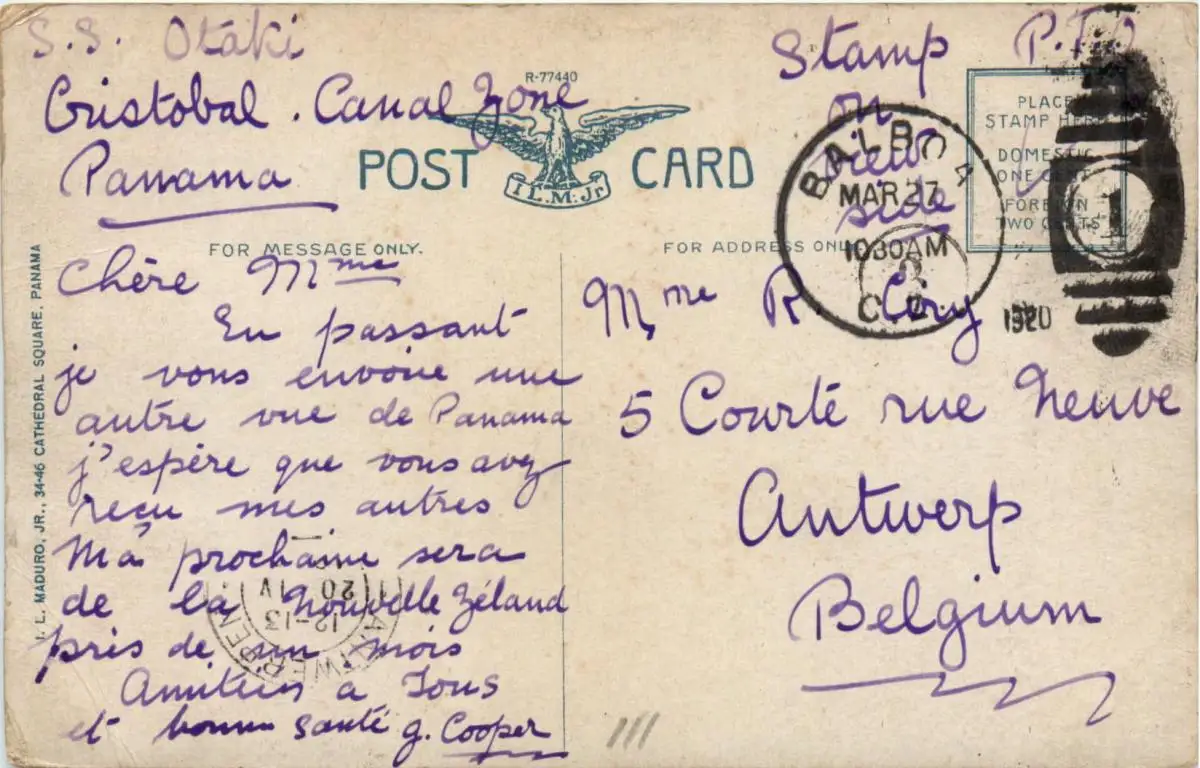 S.S. Otaki
Cristobal. Canal Zone
Panama
Stamp P.T.O
on
view
side
R-77440
POST CARD
I.L.M.Jr
PLACE
STAMP HERE
DOMESTIC
ONE CENT
FOREIGN
TWO CENTS
BALBOA
MAR 27
1030AM
C.Z.
1920
1
FOR MESSAGE ONLY.
FOR ADDRESS ONLY
I. L. MADURO, JR., 34-46 CATHEDRAL SQUARE, PANAMA
Chère Mme
En passant
je vous envoie une
autre vue de Panama
j'espère que vous avez
reçu mes autres
Ma prochaine sera
de la Nouvelle Zéland
près de un mois
Amitiés a Tous
et bonne santé g. Cooper
Mme R. Cery
5 Courte rue Neuve
Antwerp
Belgium
ANTWERPEN
12-13
IV
20